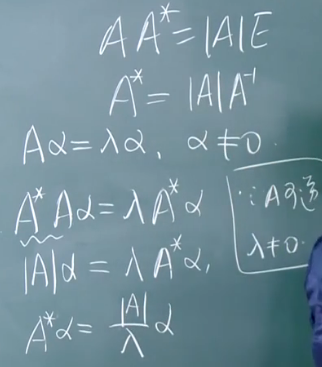 AA* = |A|E
A* = |A|A⁻¹
Aα = λα, α ≠ 0.
A*Aα = λA*α
|A|α = λA*α,
A*α = |A|/λ α
∵ A可逆
λ ≠ 0.